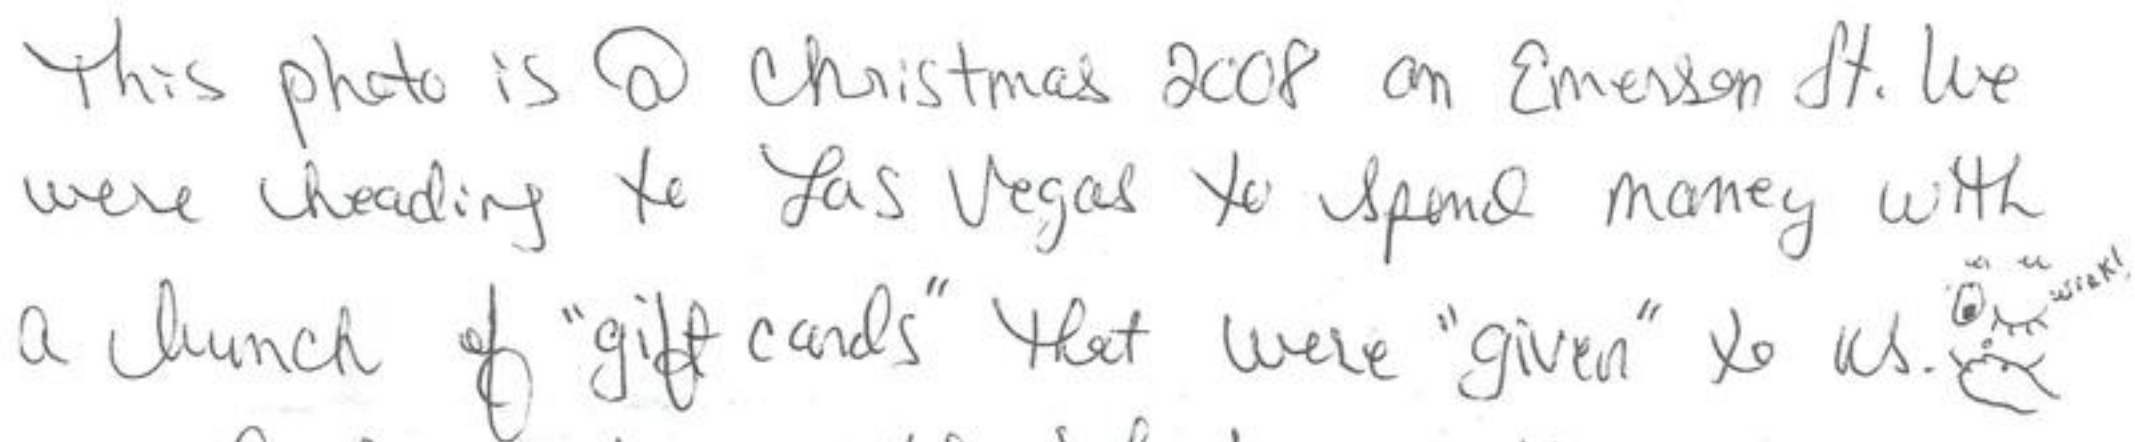 This photo is @ Christmas 2008 on Emerson St. We
were heading to Las Vegas to spend money with
a bunch of "gift cards" that were "given" to us.
wink!